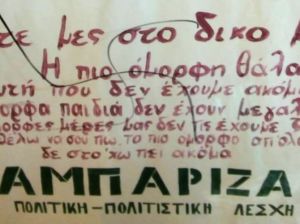 τε μες στο δικο μ
Η πιο όμορφη θάλα
υτή που δεν έχουμε ακόμ
ορφα παιδιά δεν έχουν μεγαλ
ορφες μέρες μας δεν τις έχουμε ζ
θελω να σου πω. το πιο ομορφο απ' ολ
δε στο 'χω πει ακόμα
ΑΜΠΑΡΙΖΑ
ΠΟΛΙΤΙΚΗ-ΠΟΛΙΤΙΣΤΙΚΗ ΛΕΣΧΗ